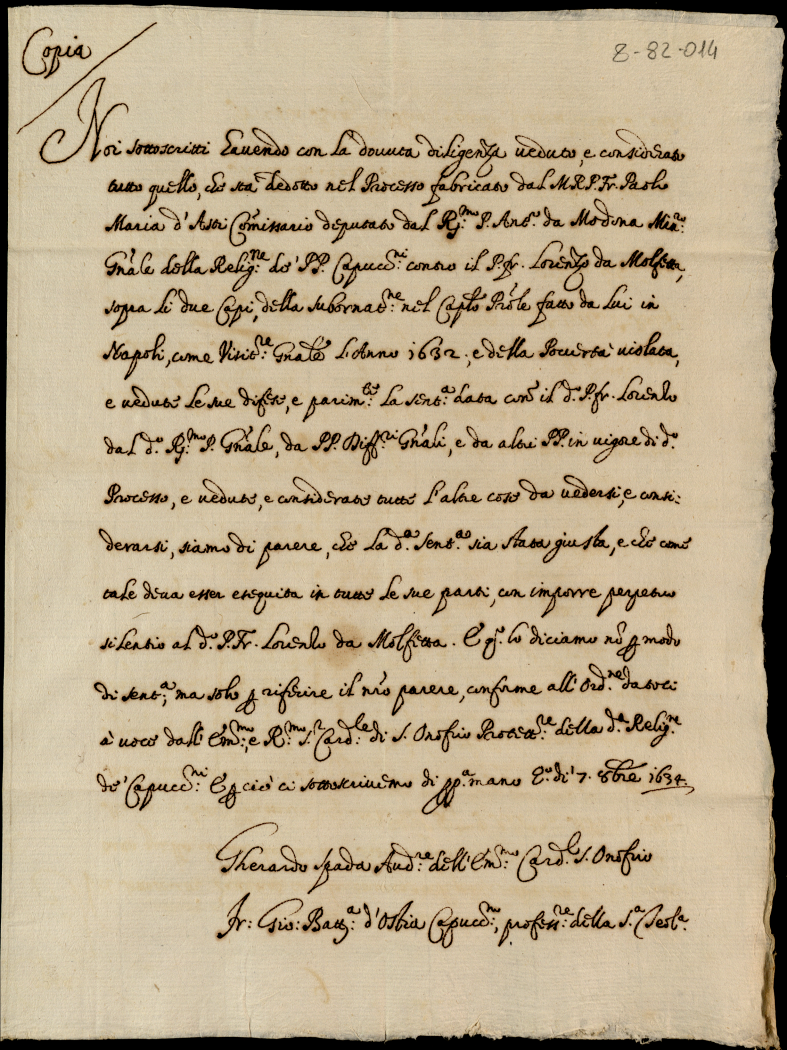 Copia
8-82-014
Noi sottoscritti havendo con la dovuta diligenza veduto, e considerato
tutto quello, che sta dedotto nel Processo fabricato dal M.R.P. Fr. Paolo
Maria d'Asti Comissario deputato dal R.mo P. Ant.o da Modona Min.ro
Gnãle della Relig.ne de' PP. Capucc.ni contro il P. fr. Lorenzo da Molfetta,
sopra li due Capi, della subornat.ne nel Caplo Prõle fatto da lui in
Napoli, come Visit.re Gnãle l'Anno 1632. e della Povertà violata,
e vedute le sue difese, e parim.te la sent.a data conõ il d.o P. fr. Lorenzo
dal d.o R.mo P. Gnãle, da PP. Diff.ri Gnãli, e da altri PP. in vigore di d.o
Processo, e vedute, e considerate tutte l'altre cose da vedersi, e consi-
derarsi, siamo di parere, che la d.a sent.a sia stata giusta, e che come
tale deva esser esequita in tutte le sue parti, con imporre perpetuo
silentio al d.o P. Fr. Lorenzo da Molfetta. E q.o lo diciamo nõ ꝑ modo
di sent.a, ma solo ꝑ riferire il nrõ parere, conforme all'Ord.ne datoci
à voce dall'Em.mo, e R.mo S.r Card.le di S. Onofrio Protett.re della d.a Relig.ne
de' Capucc.ni E ꝑ ciò ci sottoscrivemo di ꝓp.a mano q.o dì 7. 8bre 1634.
Gherardo Spada Aud.re dell'Em.mo Card.l S. Onofrio
Fr: Gio: Batt.a d'Ostia Capucc.no, profess.re della S.a Teol.a